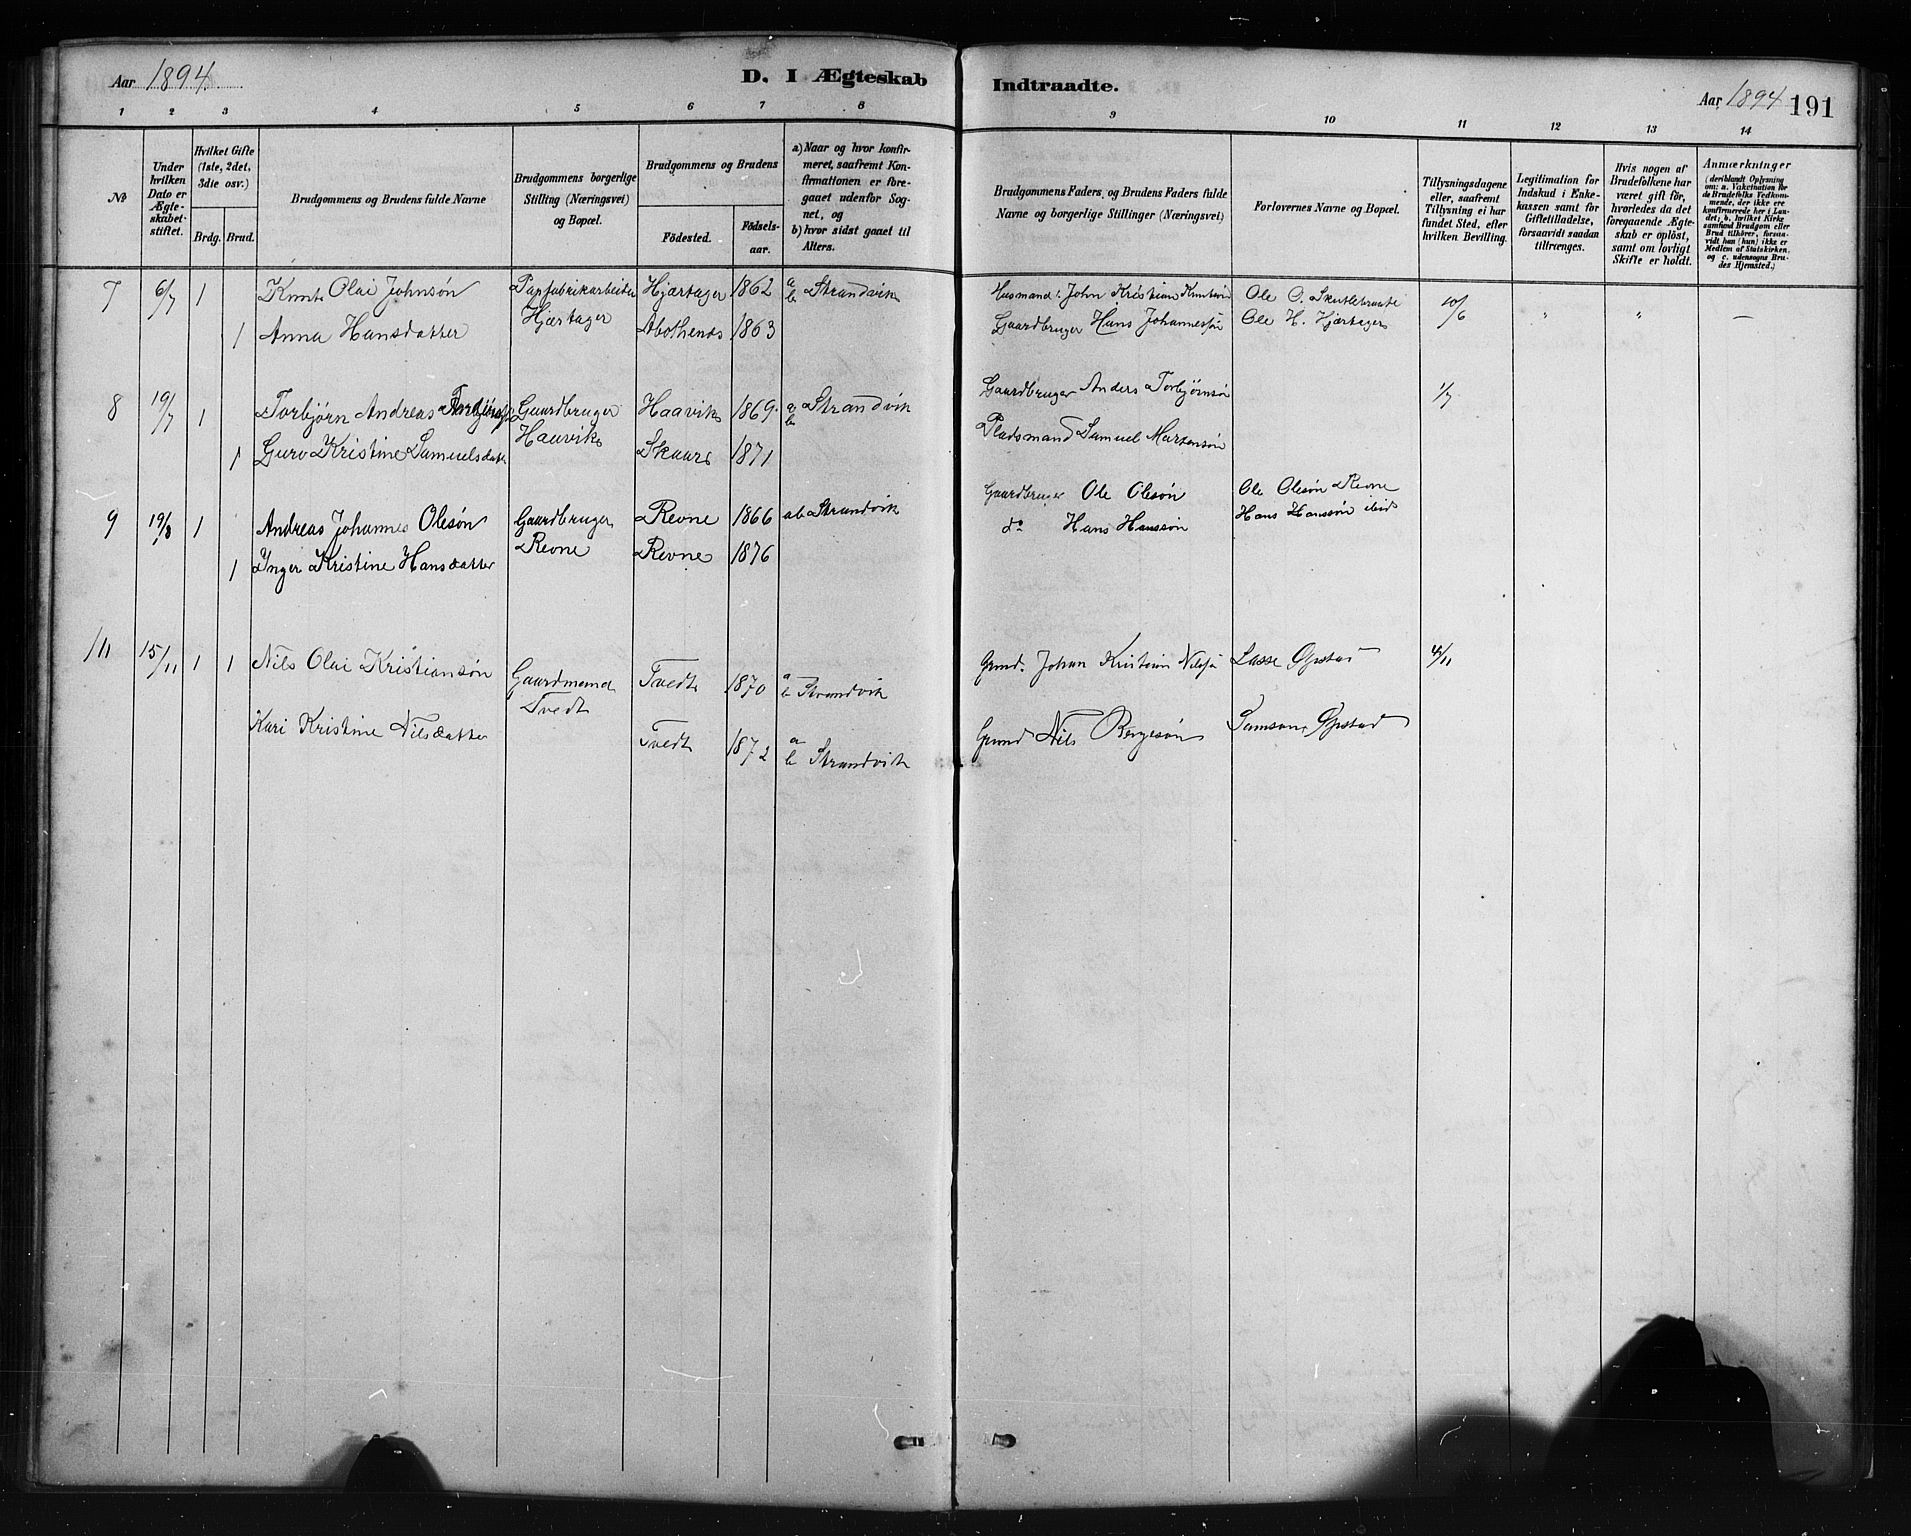 Aar 1894.
D. I Ægteskab Indtraadte.
Aar 1894 191
1 2 3 4 5 6 7 8 9 10 11 12 13 14
№
Under hvilken Dato er Ægteskabet stiftet.
Hvilket Gifte (1ste, 2det, 3die osv.)
Brdg. Brud.
Brudgommens og Brudens fulde Navne
Brudgommens borgerlige Stilling (Næringsvei) og Bopæl.
Brudgommens og Brudens
Födested. Födselsaar.
a) Naar og hvor konfirmeret, saafremt Konfirmationen er foregaaet udenfor Sognet, og
b) hvor sidst gaaet til Alters.
Brudgommens Faders, og Brudens Faders fulde Navne og borgerlige Stillinger (Næringsvei)
Forlovernes Navne og Bopæl.
Tillysningsdagene eller, saafremt Tillysning ei har fundet Sted, efter hvilken Bevilling.
Legitimation for Indskud i Enkekassen samt for Giftetilladelse, forsaavidt saadan tiltrænges.
Hvis nogen af Brudefolkene har været gift før, hvorledes da det foregaaende Ægteskab er oplöst, samt om lovligt Skifte er holdt.
Anmærkninger
(deriblandt Oplysning om: a. Vakcination for de Brudefolks Vedkommende, der ikke ere konfirmerede her i Landet; b. hvilket Kirkesamfund Brudgom eller Brud tilhörer, forsaavidt han (hun) ikke er Medlem af Statskirken, og c. udensogns Brudes Hjemsted.)
7 6/7 1 Knut Olai Johnsøn Papfabrikarbeider Hjærtager 1862 a b Strandvik Husmand John Kristian Ole O. 10/6 " " —
Hjærtager
1 Anna Hansdatter 1863 Gaardbruger Hans Johannessøn Ole H. Hjærtager
8 19/7 1 Torbjørn Andreas Gaardbruger Haavik 1869 a b Strandvik Gaardbruger Anders Torbjørnsøn 1/7
Haavik
1 Guro Kristine Samuelsdatter Skaar 1871 Pladsmand Samuel Martensøn
9 19/8 1 Andreas Johannes Olesøn Gaardbruger Revne 1866 ab Strandvik Gaardbruger Ole Olesøn Ole Olesøn Revne
Revne
1 Inger Kristine Hansdatter Revne 1876 do Hans Hanssøn Hans Hanssøn ibid
15/11 1 1 Nils Olai Kristiansøn Gaardmand Tvedt 1870 a b Strandvik Grmd. Johan Kristian Nilsøn Lasse Øpstad 4/11
Tvedt
Kari Kristine Nilsdatter Tvedt 1872 a b Strandvik Grmd Nils Bergesøn Samson Øpstad